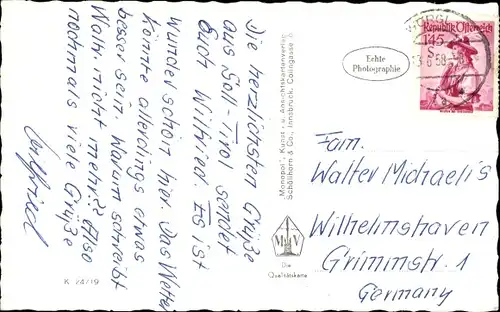 Die herzlichsten Grüße
aus Söll-Tirol sendet
Euch Wilfried. Es ist
wunderschön hier. Das Wetter
könnte allerdings etwas
besser sein. Warum schreibt
Waltr. nicht mehr?? Also
nochmals viele Grüße
Wilfried
K 24719
Monopol-, Kunst- u. Ansichtskartenverlag
Schöllhorn & Co., Innsbruck, Colingasse
M V
Die
Qualitätskarte
Echte
Photographie
WÖRGL
13.6.58
Republik Österreich
1.45
S
Fam.
Walter Michaelis
Wilhelmshaven
Grimmstr. 1
Germany